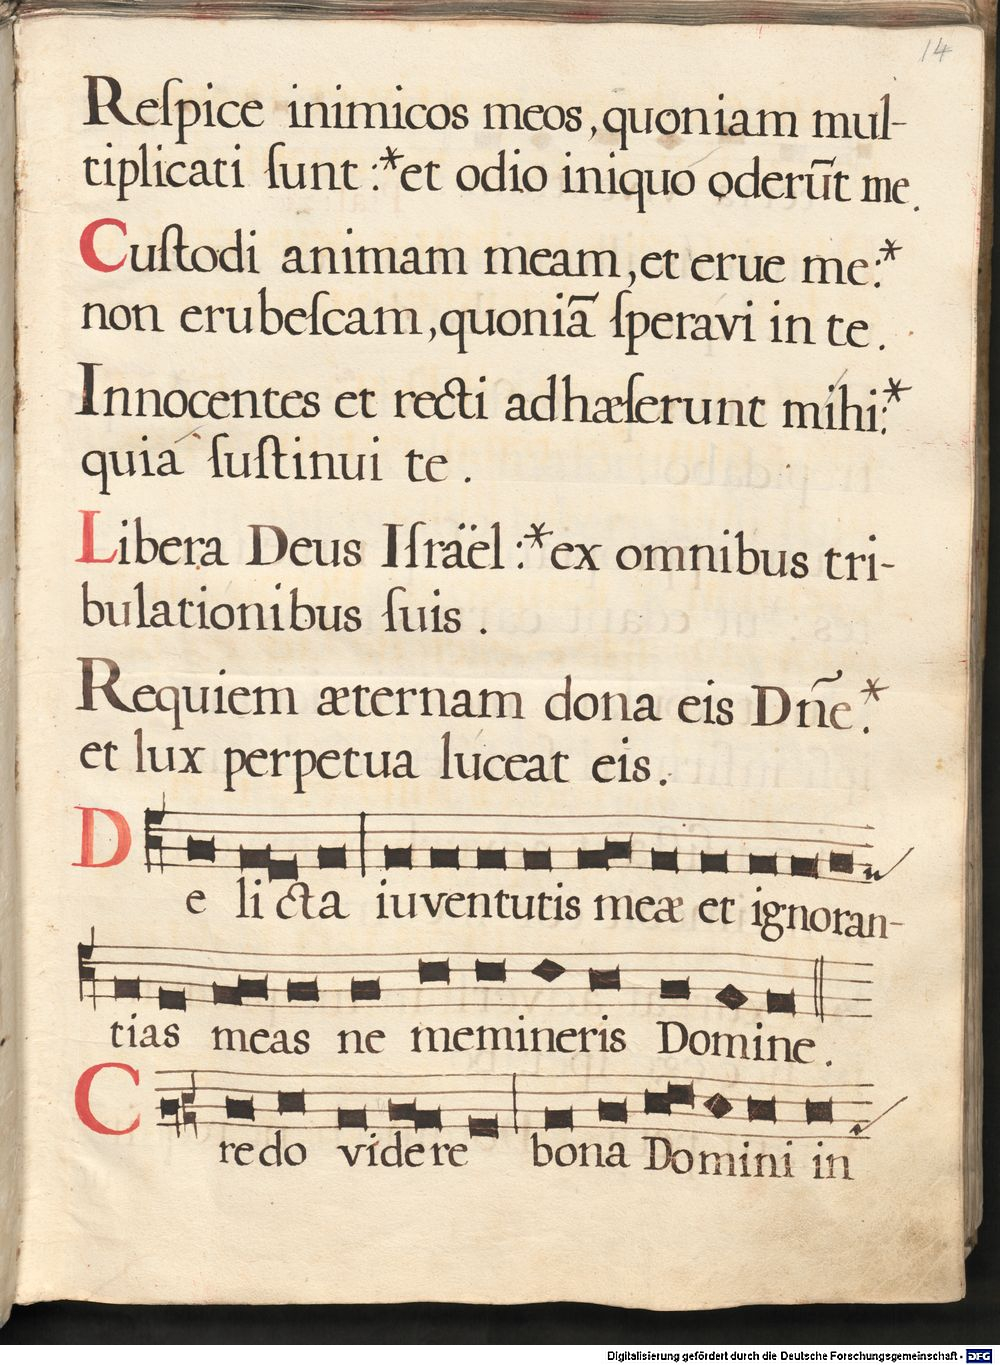 14
Reſpice inimicos meos, quoniam mul-
tiplicati ſunt :* et odio iniquo oderũt me.
Cuſtodi animam meam, et erue me :*
non erubeſcam, quoniã ſperavi in te.
Innocentes et recti adhæſerunt mihi :*
quia ſuſtinui te.
Libera Deus Iſräel :* ex omnibus tri-
bulationibus ſuis.
Requiem æternam dona eis Dñe :*
et lux perpetua luceat eis.
De licta iuventutis meæ et ignoran-
tias meas ne memineris Domine.
Credo videre bona Domini in
Digitalisierung gefördert durch die Deutsche Forschungsgemeinschaft - DFG